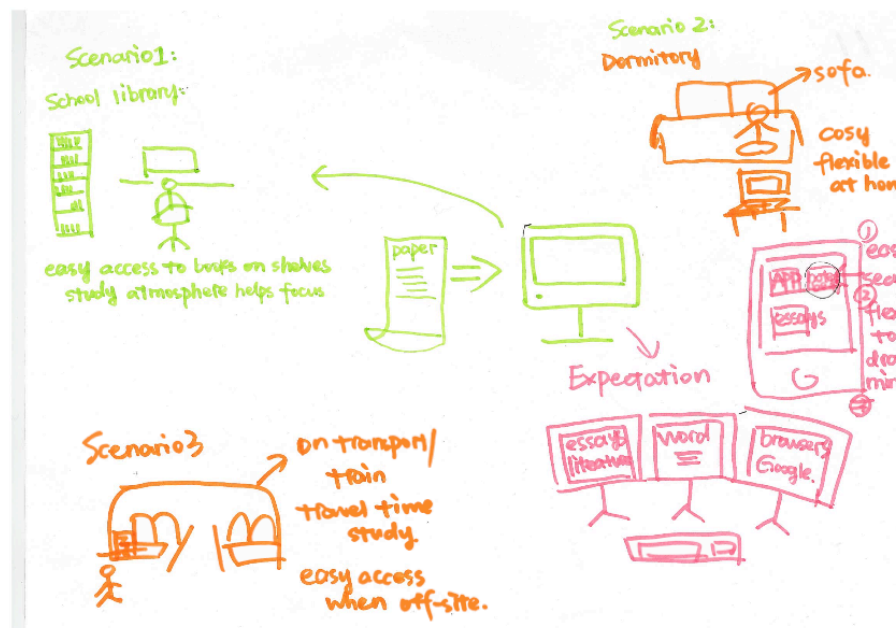 Scenario1:
School library:
easy access to books on shelves
study atmosphere helps focus
paper
Scenario 2:
Dormitory
sofa.
cosy
flexible
at hom
①
eas
sea
②
flex
to
dra
min
APP
notes
essays
Expectation
essays
literature
word
browsers
Google.
Scenario3
on transport/
train
travel time
study
easy access
when off-site.